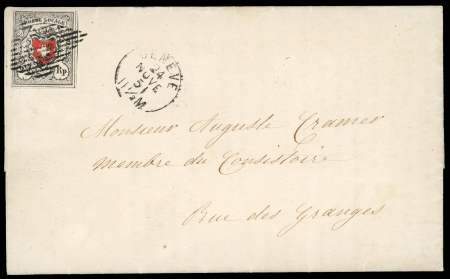 POSTE LOCALE
Rp
GENEVE
24
NOVE
51
11½M
Monsieur Auguste Cramer
membre du Consistoire
Rue des Granges